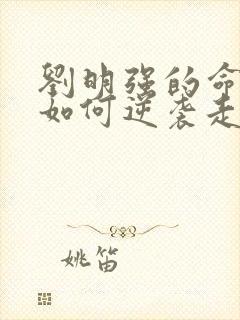 劉明强的命
如何逆袭走
姚笛